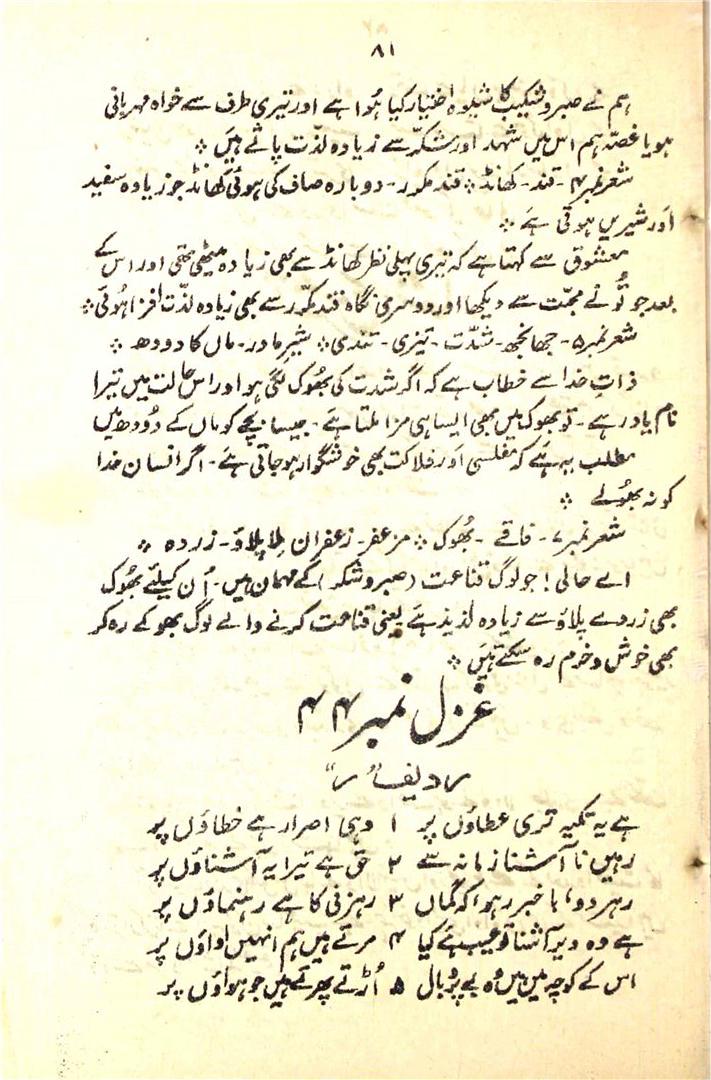 ۸۱
ہم نے صبر و شکیب کا شیوہ اختیار کیا ہُوا ہے اور تیری طرف سے خواہ مہربانی
ہو یا غصّہ ہم اس میں شہد اور شکّر سے زیادہ لذّت پاتے ہیں ٭
شعر نمبر ۴ - قند - کھانڈ ٭ قند مکرر - دوبارہ صاف کی ہوئی کھانڈ جو زیادہ سفید
اَور شیریں ہوتی ہَے ٭
معشوق سے کہتا ہے کہ تیری پہلی نظر کھانڈ سے بھی زیادہ میٹھی تھی اور اس کے
بعد جو تُو نے محبّت سے دیکھا اور دوسری نگاہ قند مکّرر سے بھی زیادہ لذّت افزا ہُوئی ٭
شعر نمبر ۵ - جھانجھ - شدّت - تیزی - تندی ٭ شیرِ مادر - ماں کا دودھ ٭
ذاتِ خدا سے خطاب ہے کہ اگر شدت کی بھُوک لگی ہو اور اس حالت میں تیرا
نام یاد رہے - تو بھوک میں بھی ایسا ہی مزا ملتا ہَے - جیسا بچے کو ماں کے دُودھ میں
مطلب یہ ہَے کہ مفلسی اَور فلاکت بھی خوشگوار ہو جاتی ہَے - اگر انسان خدا
کو نہ بھُولے ٭
شعر نمبر ۷ - فاقے - بھُوک ٭ مزعفر - زعفران مِلا پلاؤ - زردہ ٭
اے حالی! جو لوگ قناعت (صبر و شکر) کے مہمان ہیں - اُن کیلئے بھُوک
بھی زردے پلاؤ سے زیادہ لذیذ ہَے یعنی قناعت کرنے والے لوگ بھوکے رہ کر
بھی خوش و خرم رہ سکتے ہیَں ٭
غزل نمبر ۴۴
ردیف "ر"
ہے یہ تکیہ تری عطاؤں پر ۱ وہی اصرار ہے خطاؤں پر
رہیں نا آشنا زمانہ سے ۲ حق ہے تیرا یہ آشناؤں پر
رہردو! با خبر رہو کہ گماں ۳ رہزنی کا ہے رہنماؤں پر
ہے وہ دیر آشنا تو عیب ہَے کیا ۴ مرتے ہیں ہم انہیں اداؤں پر
اس کے کوچہ میں ہیں وُہ بے پر و بال ۵ اُڑتے پھرتے ہیں جو ہواؤں پر